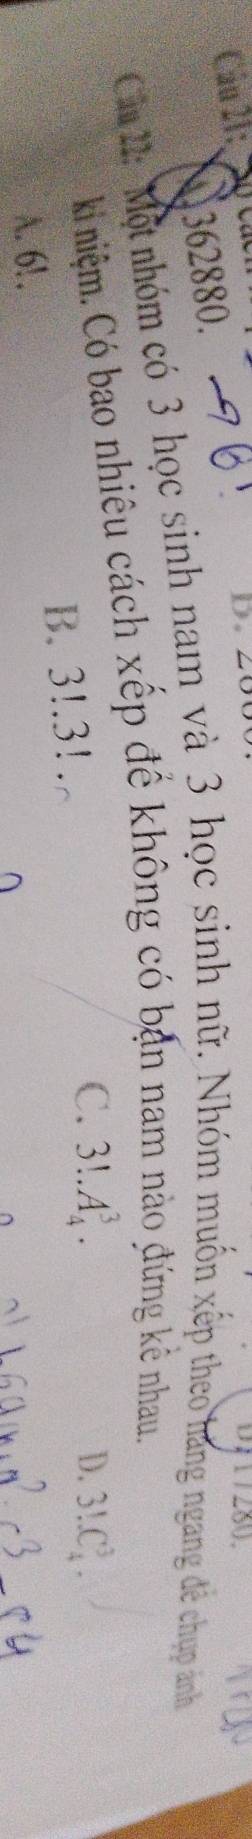 Câu 21:
362880.
Câu 22: Một nhóm có 3 học sinh nam và 3 học sinh nữ. Nhóm muốn xếp theo hàng ngang để chụp ảnh
kỉ niệm. Có bao nhiêu cách xếp để không có bạn nam nào đứng kề nhau.
A. 6!. B. 3!.3!. C. 3!.A₄³. D. 3!.C₄³.